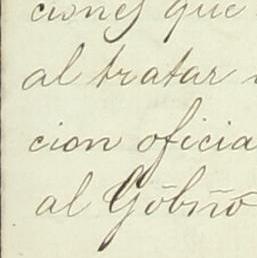 ciones que
al tratar
cion oficia
al Gõbño